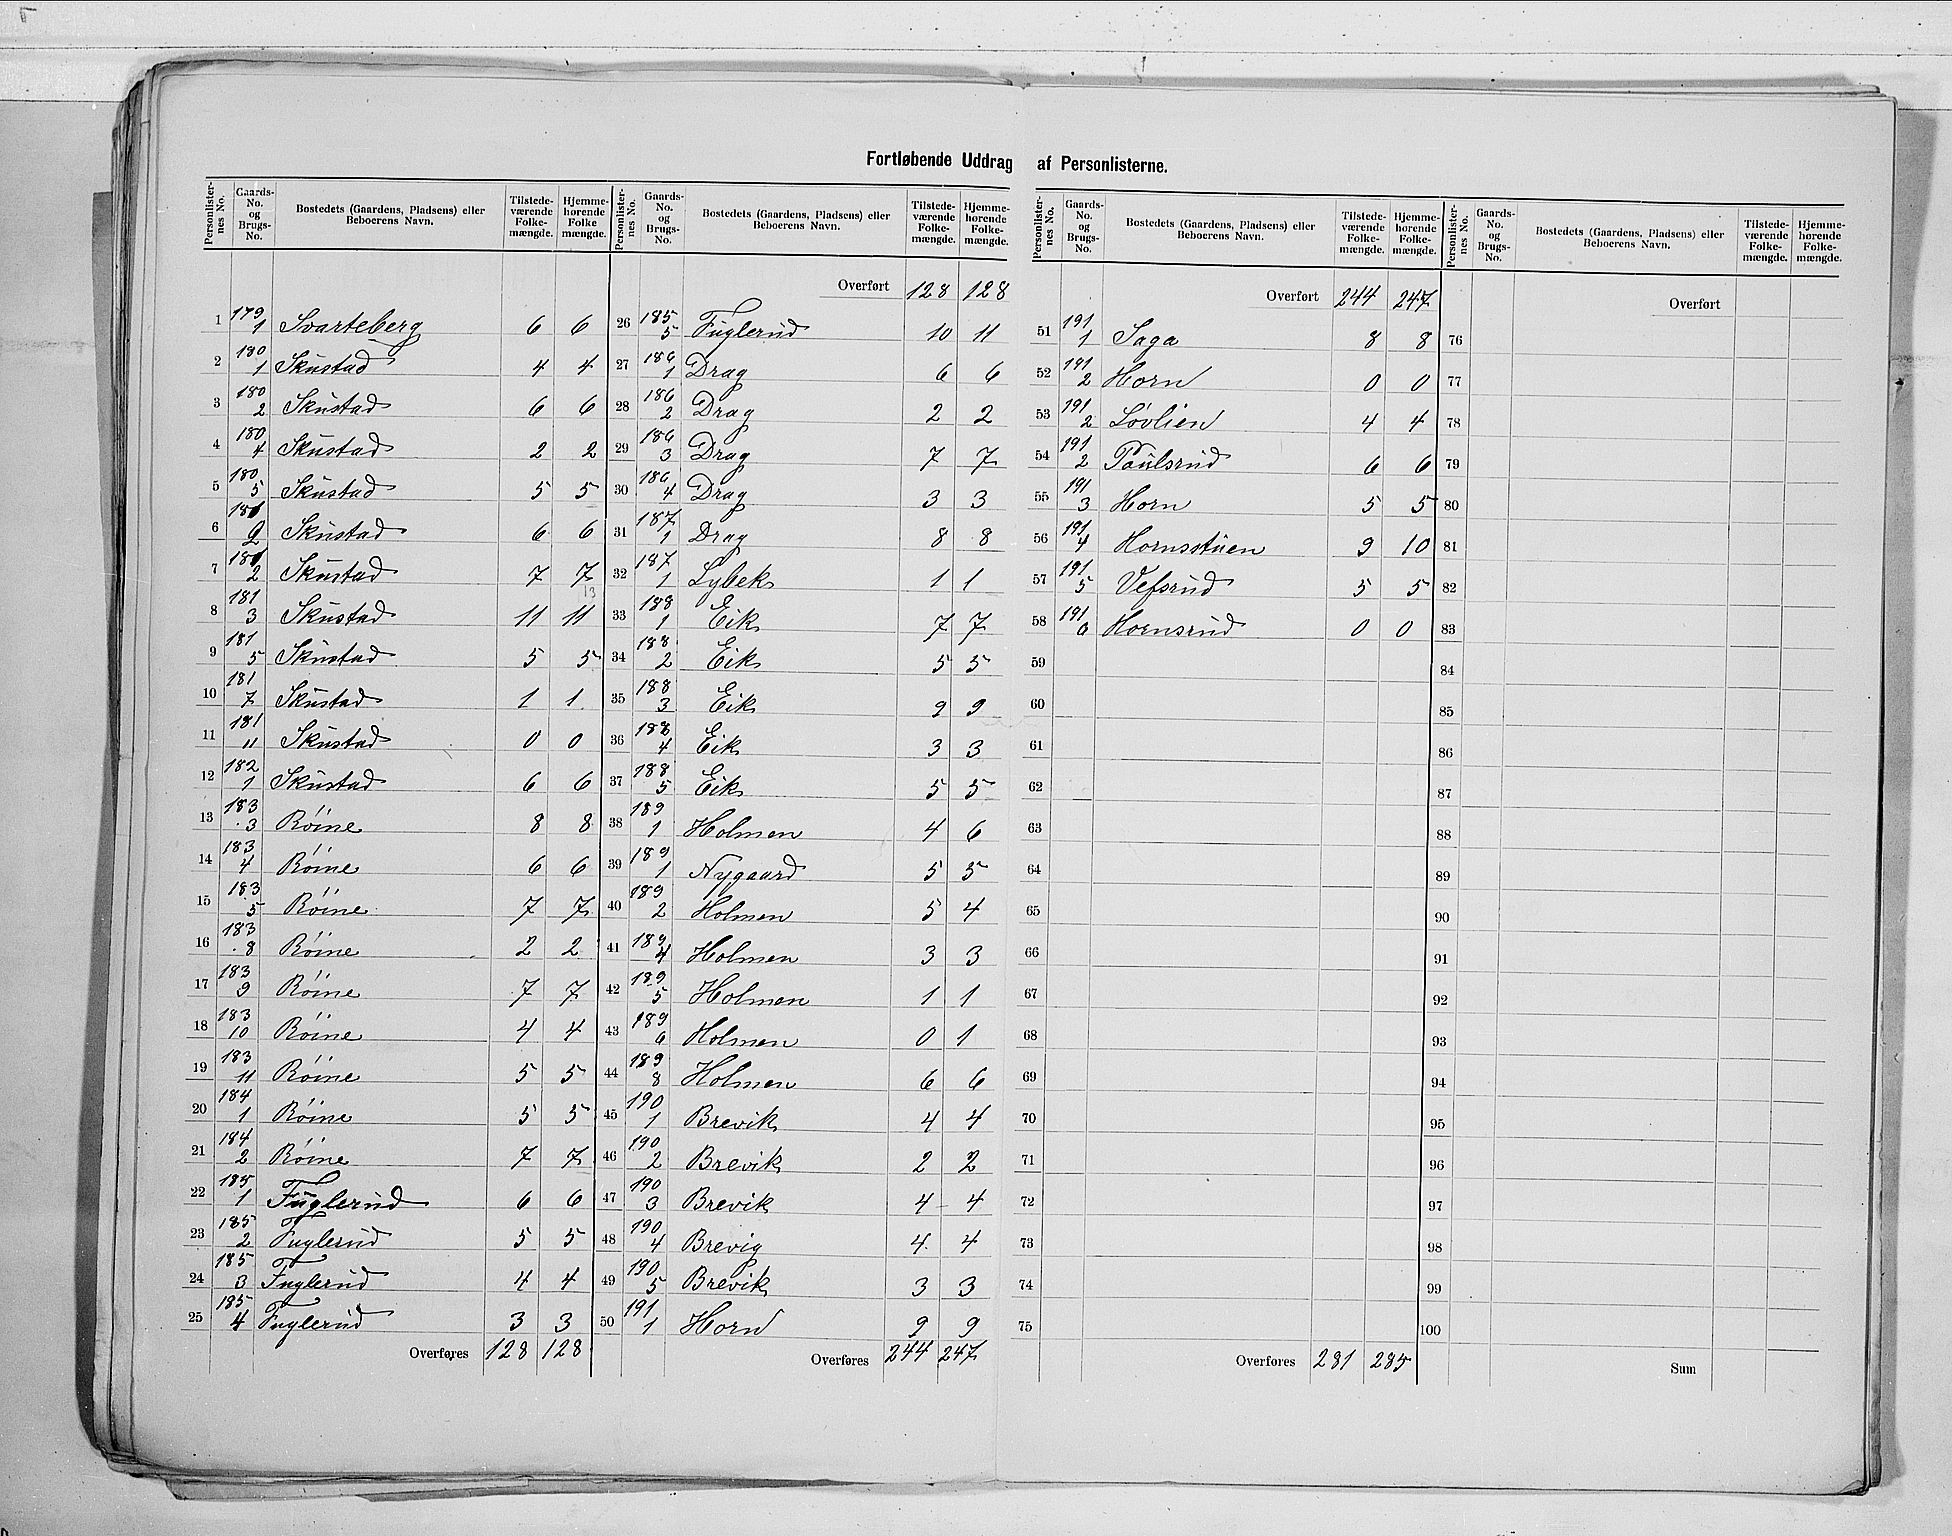 Fortløbende Uddrag af Personlisterne.
Personlister-nes No. | Gaards-No. og Brugs-No. | Bostedets (Gaardens, Pladsens) eller Beboerens Navn. | Tilstede-værende Folke-mængde. | Hjemme-hørende Folke mængde.
1 179/1 Svarteberg 6 6
2 180/1 Skustad 4 4
3 180/2 Skustad 6 6
4 180/4 Skustad 2 2
5 180/5 Skustad 5 5
6 181 Skustad 6 6
7 181/2 Skustad 7 7
13
8 181/3 Skustad 11 11
9 181/5 Skustad 5 5
10 181/7 Skustad 1 1
11 181/11 Skustad 0 0
12 182/1 Skustad 6 6
13 183/3 Röine 8 8
14 183/4 Röine 6 6
15 183/5 Röine 7 7
16 183/8 Röine 2 2
17 183/9 Röine 7 7
18 183/10 Röine 4 4
19 183/11 Röine 5 5
20 184/1 Röine 5 5
21 184/2 Röine 7 7
22 185/1 Fuglerud 6 6
23 185/2 Fuglerud 5 5
24 185/3 Fuglerud 4 4
25 185/4 Fuglerud 3 3
Overføres 128 128
Personlister-nes No. | Gaards-No. og Brugs-No. | Bostedets (Gaardens, Pladsens) eller Beboerens Navn. | Tilstede-værende Folke-mængde. | Hjemme-hørende Folke-mængde.
Overført 128 128
26 185/5 Fuglerud 10 11
27 186/1 Drag 6 6
28 186/2 Drag 2 2
29 186/3 Drag 7 7
30 186/4 Drag 3 3
31 187/1 Drag 8 8
32 187/1 Lybek 1 1
33 188/1 Eik 7 7
34 188/2 Eik 5 5
35 188/3 Eik 9 9
36 188/4 Eik 3 3
37 188/5 Eik 5 5
38 189/1 Holmen 4 6
39 189/1 Nygaard 5 5
40 189/2 Holmen 5 4
41 189/4 Holmen 3 3
42 189/5 Holmen 1 1
43 189/6 Holmen 0 1
44 189/8 Holmen 6 6
45 190/1 Brevik 4 4
46 190/2 Brevik 2 2
47 190/3 Brevik 4 4
48 190/4 Brevig 4 4
49 190/5 Brevik 3 3
50 191/1 Horn 9 9
Overføres 244 247
Personlister-nes No. | Gaards-No. og Brugs-No. | Bostedets (Gaardens, Pladsens) eller Beboerens Navn. | Tilstede-værende Folke-mængde. | Hjemme-hørende Folke-mængde.
Overført 244 247
51 191/1 Saga 8 8
52 191/2 Horn 0 0
53 191/2 Lövlien 4 4
54 191/2 Paulsrud 6 6
55 191/3 Horn 5 5
56 191/4 Hornsstuen 9 10
57 191/5 Vefsrud 5 5
58 191/6 Hornsrud 0 0
59
60
61
62
63
64
65
66
67
68
69
70
71
72
73
74
75
Overføres 281 285
Personlister-nes No. | Gaards-No. og Brugs-No. | Bostedets (Gaardens, Pladsens) eller Beboerens Navn. | Tilstede-værende Folke-mængde. | Hjemme-hørende Folke-mængde.
Overført
76
77
78
79
80
81
82
83
84
85
86
87
88
89
90
91
92
93
94
95
96
97
98
99
100
Sum